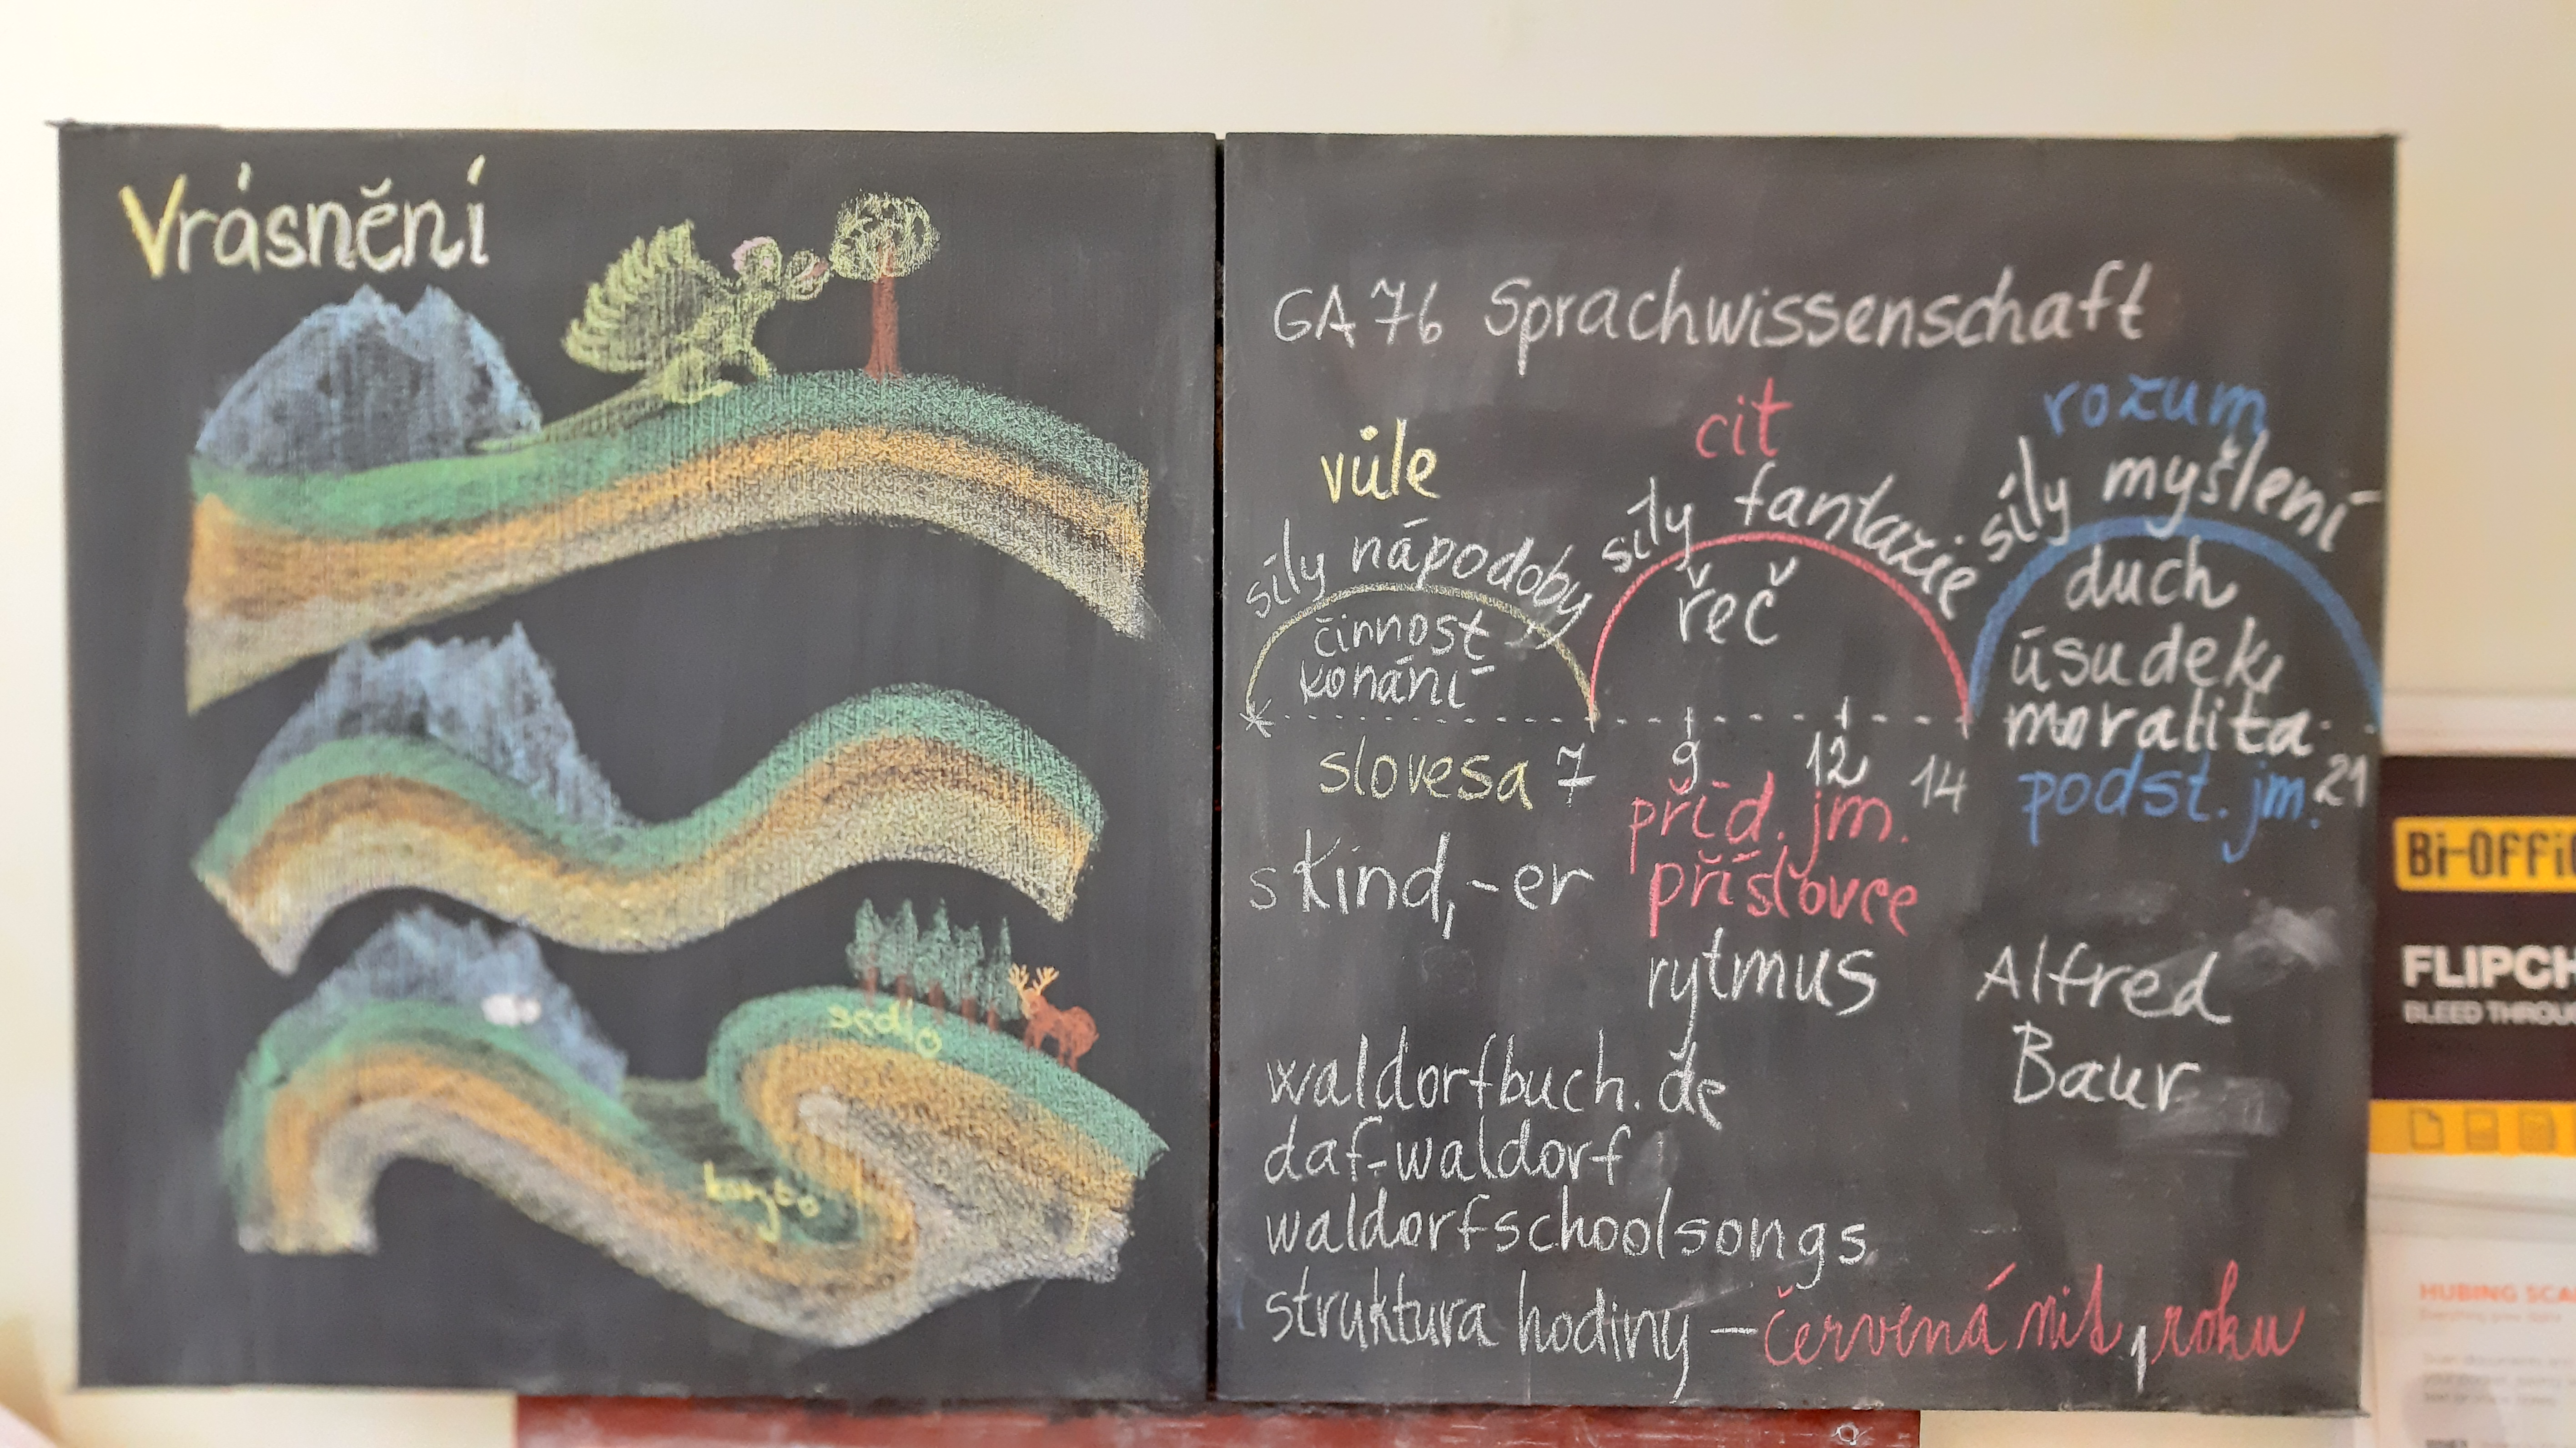 Vrásnění
sedlo
koryto
GA 76 Sprachwissenschaft
vůle
cit
rozum
síly nápodoby
síly fantazie
síly myšlení
činnost
konání
řeč
duch
úsudek,
moralita
slovesa 7
9
12
14
21
příd. jm.
příslovce
podst. jm.
s Kind, -er
rytmus
Alfred
Baur
waldorfbuch.de
daf-waldorf
waldorfschoolsongs
struktura hodiny – červená nit, roku
Bi-Offi
FLIPCH
BLEED THROU
HUBING SCA